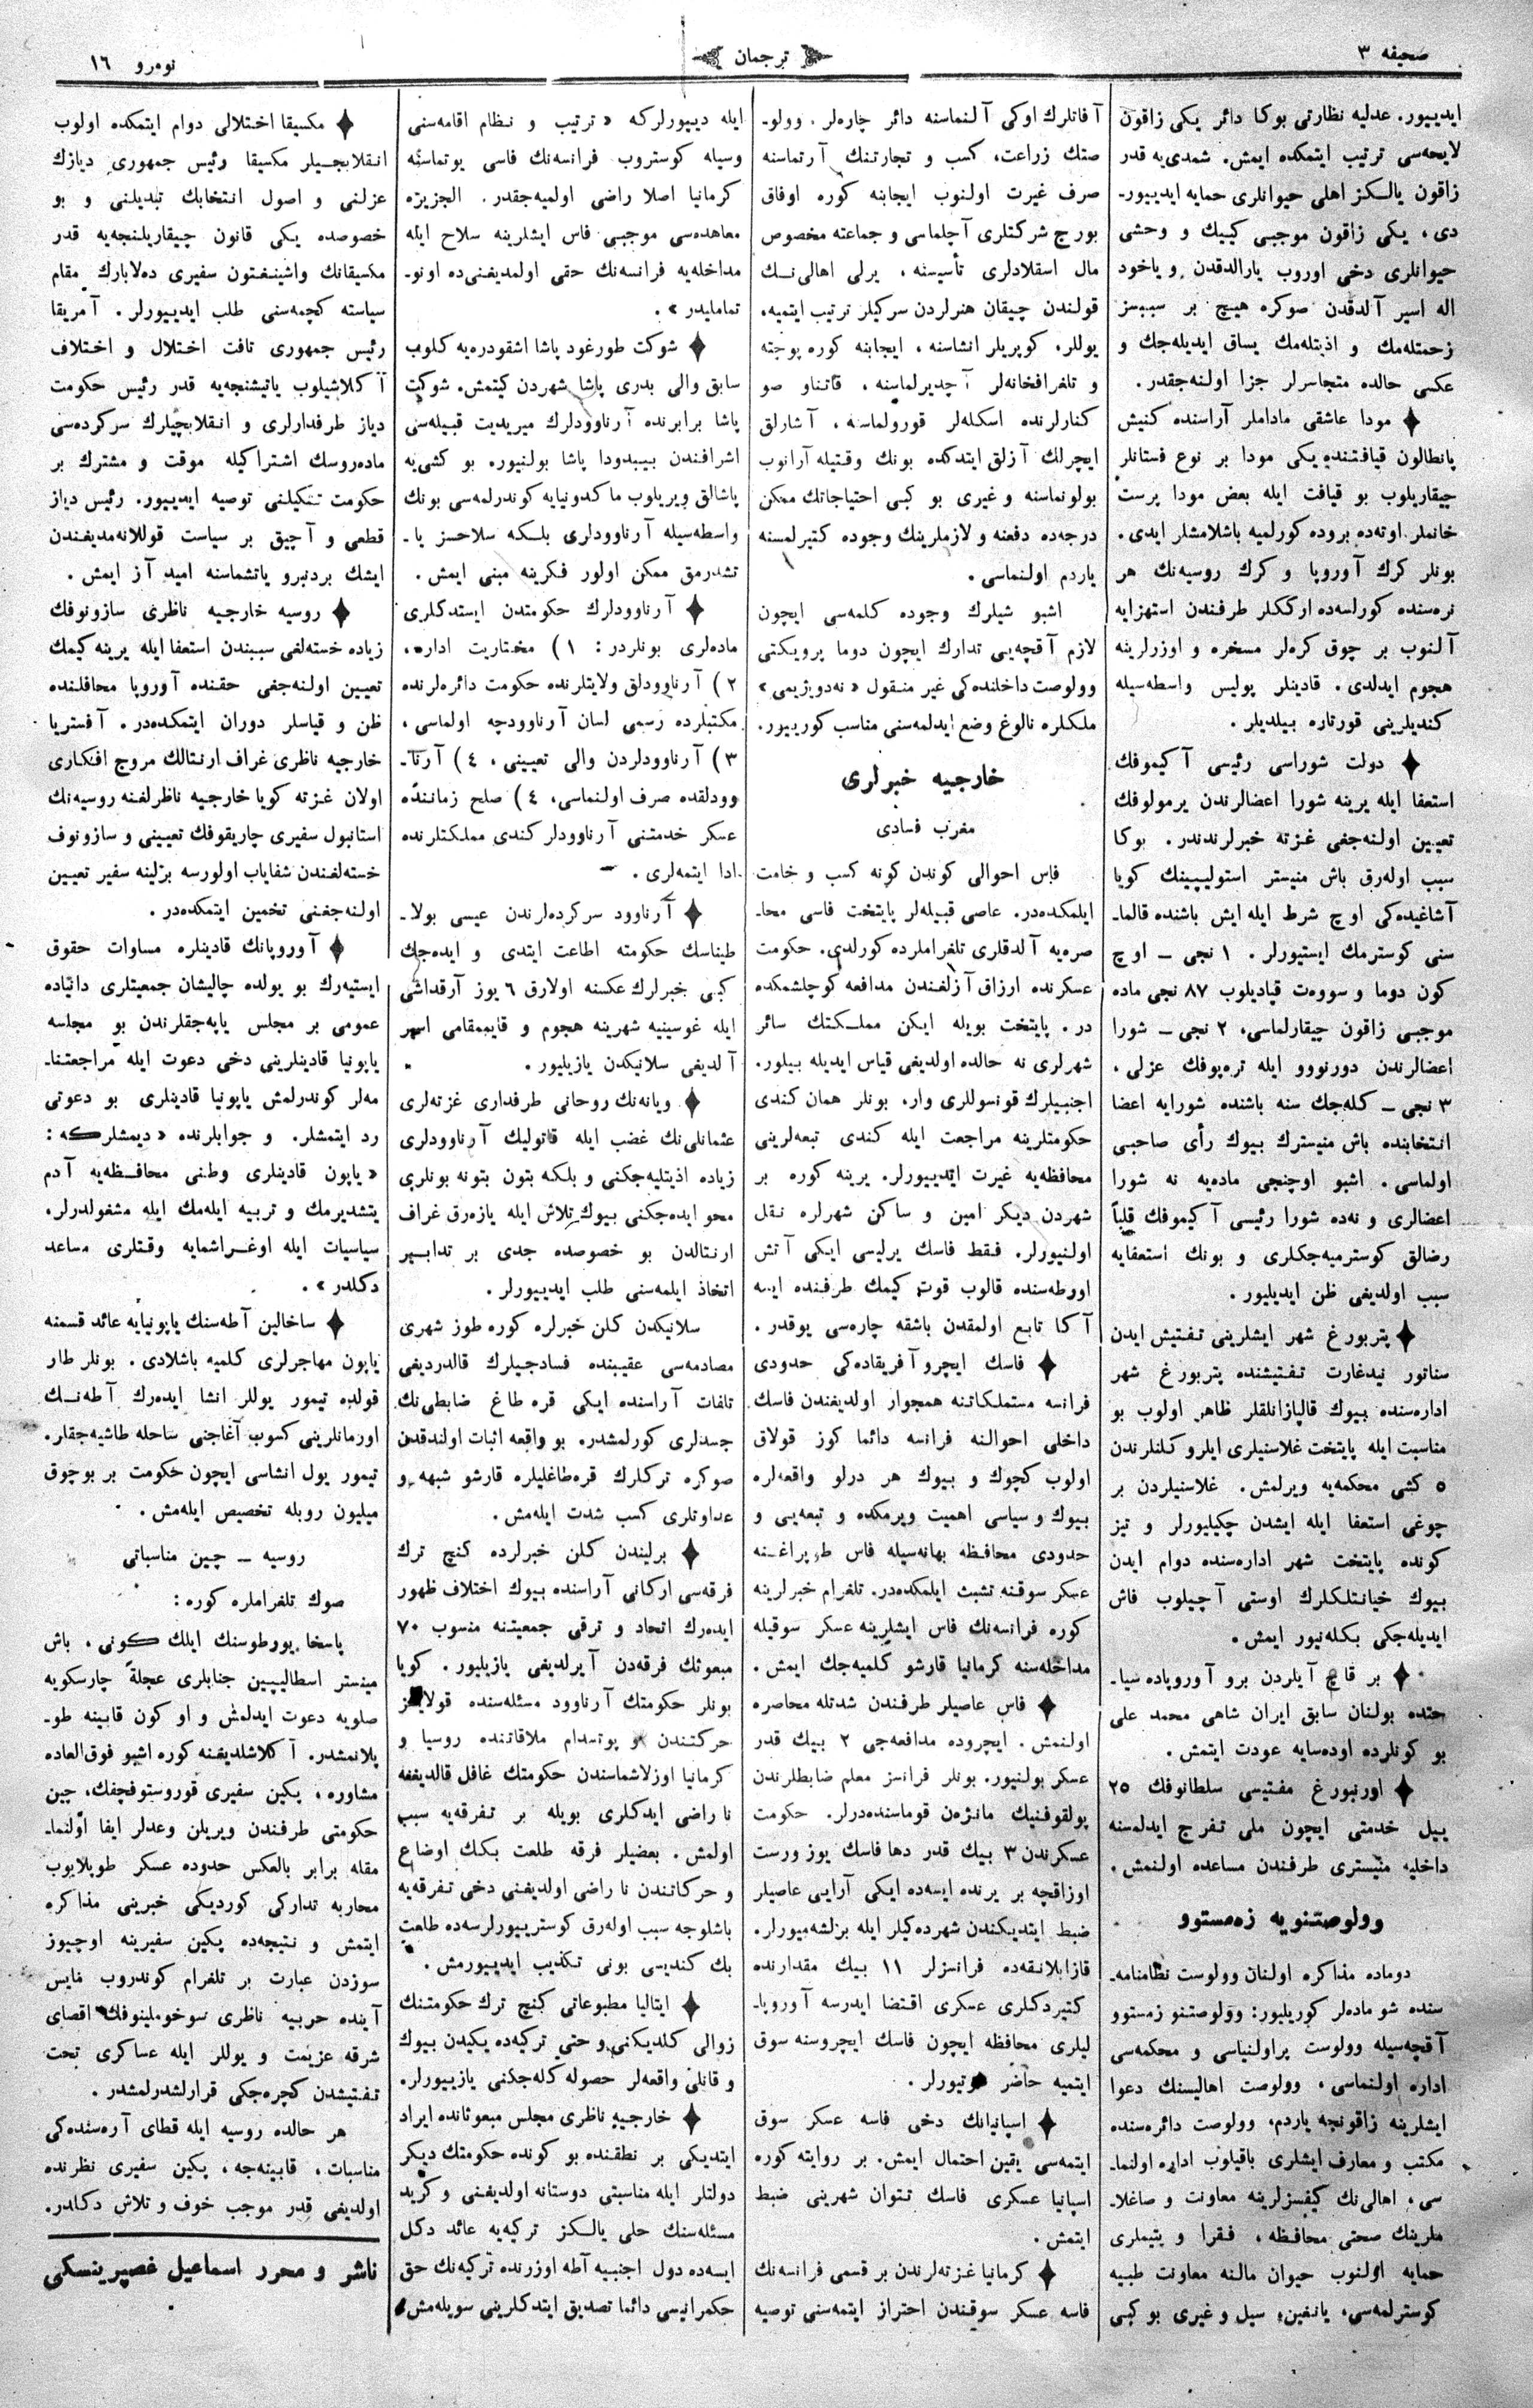 صحیفه ٣
ترجمان
نومرو ١٦
ایدییور. عدلیه نظارتی بوکا دائر یکی زاقون
لایحه‌سی ترتیب ایتمکده ایمش. شمدی‌یه قدر
زاقون یالـکز اهلی حیوانلری حمایه ایدییور-
دی، یکی زاقون موجبی کییك و وحشی
حیوانلری دخی اوروب یارالدقدن ویاخود
اله اسیر آلدقدن صوکره هیچ بر سببسز
زحمتله‌مك و اذیتله‌مك یساق ایدیله‌جك و
عکسی حالده متجاسرلر جزا اولنه‌جقدر.
مودا عاشقی ماداملر آراسنده کنیش
پانطالون قیافتنده یکی مودا بر نوع فستانلر
چیقاریلوب بو قیافت ایله بعض مودا پرست
خانملر اوته‌ده بروده کورلمیه باشلامشلر ایدی.
بونلر کرك آوروپا و کرك روسیه‌نك هر
نره‌سنده کورلسه‌ده ارککلر طرفندن استهزایه
آلنوب بر چوق کره‌لر مسخره و اوزرلرینه
هجوم ایدلدی. قادینلر پولیس واسطه‌سیله
کندیلرینی قورتاره بیلدیلر.
دولت شوراسی رئیسی آکیموفك
استعفا ایله یرینه شورا اعضالرندن یرمولوفك
تعیین اولنه‌جغی غزته خبرلرندندر. بوکا
سبب اوله‌رق باش منیستر استولیپینك کویا
آشاغیده‌کی اوچ شرط ایله ایش باشنده قالما-
سنی کوسترمك ایستیورلر. ١ نجی — اوچ
کون دوما و سووه‌ت قپادیلوب ٨٧ نجی ماده
موجبی زاقون چیقارلماسی، ٢ نجی — شورا
اعضالرندن دورنووو ایله تره‌پوفك عزلی،
٣ نجی — کله‌جك سنه باشنده شورایه اعضا
انتخابنده باش منیسترك بیوك رأی صاحبی
اولماسی. اشبو اوچنجی ماده‌یه نه شورا
اعضالری و نه‌ده شورا رئیسی آکیموفك قلباً
رضالق کوسترمیه‌جکلری و بونك استعفایه
سبب اولدیغی ظن ایدیلیور.
پتربورغ شهر ایشلرینی تفتیش ایدن
سناتور نیدغارت تفتیشنده پتربورغ شهر
اداره‌سنده بیوك قالپازانلقلر ظاهر اولوب بو
مناسبت ایله پایتخت غلاسنیلری ایلروکلنلرندن
٥ کشی محکمه‌یه ویرلمش. غلاسنیلردن بر
چوغی استعفا ایله ایشدن چکیلیورلر و تیز
کونده پایتخت شهر اداره‌سنده دوام ایدن
بیوك خیانتلکلرك اوستی آچیلوب فاش
ایدیله‌جکی بکله‌نیور ایمش.
بر قاچ آیلردن برو آوروپاده سیا-
حتده بولنان سابق ایران شاهی محمد علی
بو کونلرده اوده‌سایه عودت ایتمش.
اورنبورغ مفتیسی سلطانوفك ٢٥
ییل خدمتی ایچون ملی تفرج ایدلمسنه
داخلیه منیستری طرفندن مساعده اولنمش.
وولوصتنویه زه‌مستوو
دوماده مذاکره اولنان وولوست نظامنامه-
سنده شو ماده‌لر کوریلیور: وولوصتنو زمستوو
آقچه‌سیله وولوست پراولنیاسی و محکمه‌سی
اداره اولنماسی، وولوصت اهالیسنك دعوا
ایشلرینه زاقونجه یاردم، وولوصت دائره‌سنده
مکتب و معارف ایشلری باقیلوب اداره اولنما-
سی، اهالی‌نك کیفسزلرینه معاونت و صاغلا-
ملرینك صحتی محافظه، فقرا و یتیملری
حمایه اولنوب حیوان مالنه معاونت طبیه
کوسترلمه‌سی، یانغین، سیل و غیری بو کبی
آفاتلرك اوکی آلنماسنه دائر چاره‌لر، وولو-
صتك زراعت، کسب و تجارتنك آرتماسنه
صرف غیرت اولنوب ایجابنه کوره اوفاق
بورج شرکتلری آچلماسی و جماعته مخصوص
مال اسقلادلری تأسیسنه، یرلی اهالی‌نـك
قولندن چیقان هنرلردن سرکیلر ترتیب ایتمیه،
یوللر، کوپریلر انشاسنه، ایجابنه کوره پوچته
و تلغرافخانه‌لر آچدیرلماسنه، قاتناو صو
کنارلرنده اسکله‌لر قورولماسنه، آشارلق
ایچرلك آزلق ایتدکده بونك وقتیله آرانوب
بولونماسنه و غیری بو کبی احتیاجاتك ممکن
درجه‌ده دفعنه و لازملرینك وجوده کتیرلمسنه
یاردم اولنماسی.
اشبو شیلرك وجوده کلمه‌سی ایچون
لازم آقچه‌یی تدارك ایچون دوما پرویکتی
وولوصت داخلنده‌کی غیر منقول «نه‌دویژیمی»
ملکلره نالوغ وضع ایدلمه‌سنی مناسب کورییور.
خارجیه خبرلری
مغرب فسادی
فاس احوالی کوندن کونه کسب و خامت
ایلمکده‌در. عاصی قبیله‌لر پایتخت فاسی محا-
صره‌یه آلدقلری تلغراملرده کورلدی. حکومت
عسکرنده ارزاق آزلغندن مدافعه کوچلشمکده
در. پایتخت بویله ایکن مملـکتك سائر
شهرلری نه حالده اولدیغی قیاس ایدیله بیلور.
اجنبیلرك قونسوللری وار، بونلر همان کندی
حکومتلرینه مراجعت ایله کندی تبعه‌لرینی
محافظه‌یه غیرت ایتدییورلر. یرینه کوره بر
شهردن دیکر امین و ساکن شهرلره نقل
اولنیورلر. فقط فاسك یرلیسی ایـکی آتش
اورطه‌سنده قالوب قوت کیمك طرفنده ایسه
آکا تابع اولمقدن باشقه چاره‌سی یوقدر.
فاسك ایچروآفریقاده‌کی حدودی
فرانسه مستملکاتنه همجوار اولدیغندن فاسك
داخلی احوالنه فرانسه دائما کوز قولاق
اولوب کچوك و بیوك هر درلو واقعه‌لره
بیوك و سیاسی اهمیت ویرمکده و تبعه‌یی و
حدودی محافظه بهانه‌سیله فاس طوپراغنه
عسکر سوقنه تشبث ایلمکده‌در. تلغرام خبرلرینه
کوره فرانسه‌نك فاس ایشلرینه عسکر سوقیله
مداخله‌سنه کرمانیا قارشو کلمیه‌جك ایمش.
فاس عاصیلر طرفندن شدتله محاصره
اولنمش. ایچروده مدافعه‌جی ٢ بیك قدر
عسکر بولنیور. بونلر فرانسز معلم ضابطلرندن
پولقوفنیك مانژه‌ن قوماسنده‌درلر. حکومت
عسکرندن ٣ بیك قدر دها فاسك یوز ورست
اوزاقچه بر یرنده ایسه‌ده ایکی آرایی عاصیلر
ضبط ایتدیکندن شهرده‌کیلر ایله برلشه‌میورلر.
قازابلانقه‌ده فرانسزلر ١١ بیك مقدارنده
کتیردکلری عسکری اقتضا ایدرسه آوروپا-
لیلری محافظه ایچون فاسك ایچروسنه سوق
ایتمیه حاضر طوتیورلر.
اسپانیانك دخی فاسه عسکر سوق
ایتمه‌سی یقین احتمال ایمش. بر روایته کوره
اسپانیا عسکری فاسك تتوان شهرینی ضبط
ایتمش.
کرمانیا غزته‌لرندن بر قسمی فرانسه‌نك
فاسه عسکر سوقندن احتراز ایتمه‌سنی توصیه
ایله دییورلرکه «ترتیب و نظام اقامه‌سنی
وسیله کوستروب فرانسه‌نك فاسی یوتماسنه
کرمانیا اصلا راضی اولمیه‌جقدر. الجزیزه
معاهده‌سی موجبی فاس ایشلرینه سلاح ایله
مداخله‌یه فرانسه‌نك حقی اولمدیغنی‌ده اونو-
تماملیدر».
شوکت طورغود پاشا اشقودره‌یه کلوب
سابق والی بدری پاشا شهردن کیتمش. شوکت
پاشا برابرنده آرناوودلرك میریدیت قبیله‌سی
اشرافندن بیبدودا پاشا بولنیور. بو کشی‌یه
پاشالق ویریلوب ماکدونیایه کوندرلمه‌سی بونك
واسطه‌سیله آرناوودلری بلـکه سلاحسز یا-
تشدرمق ممکن اولور فکرینه مبنی ایمش.
آرناوودلرك حکومتدن ایستدکلری
ماده‌لری بونلردر: ١) مختاریت اداره،
٢) آرناوودلق ولایتلرنده حکومت دائره‌لرنده
مکتبلرده رسمی لسان آرناوودچه اولماسی،
٣) آرناوودلردن والی تعیینی، ٤) آرنا-
وودلقده صرف اولنماسی، ٤) صلح زماننده
عسکر خدمتنی آرناوودلر کندی مملکتلرنده
ادا ایتمه‌لری.
آرناوود سرکرده‌لرندن عیسی بولا-
طیناسك حکومته اطاعت ایتدی و ایده‌جك
کبی خبرلرك عکسنه اولارق ٦ یوز آرقداشی
ایله غوسینیه شهرینه هجوم و قایممقامی اسیر
آلدیغی سلانیکدن یازیلیور.
ویانه‌نك روحانی طرفداری غزته‌لری
عثمانلی‌نك غضب ایله قاتولیك آرناوودلری
زیاده اذیتلیه‌جکنی و بلکه بتون بتونه بونلری
محو ایده‌جکنی بیوك تلاش ایله یازه‌رق غراف
ارنتالدن بو خصوصده جدی بر تدابیر
اتخاذ ایلمه‌سنی طلب ایدییورلر.
سلانیکدن کلن خبرلره کوره طوز شهری
مصادمه‌سی عقیبنده فسادجیلرك قالدردیغی
تلفات آراسنده ایکی قره طاغ ضابطی‌نك
جسدلری کورلمشدر. بو واقعه اثبات اولندقدن
صوکره ترکلرك قره‌طاغلیلره قارشو شبهه و
عداوتلری کسب شدت ایله‌مش.
برلیندن کلن خبرلرده کنج ترك
فرقه‌سی ارکانی آراسنده بیوك اختلاف ظهور
ایده‌رك اتحاد و ترقی جمعیتنه منسوب ٧٠
مبعوثك فرقه‌دن آیرلدیغی یازیلیور. کویا
بونلر حکومتك آرناوود مسئله‌سنده قولایسز
حرکتندن و پوتسدام ملاقاتنده روسیا و
کرمانیا اوزلاشماسندن حکومتك غافل قالدیغنه
نا راضی ایدکلری بویله بر تفرقه‌یه سبب
اولمش. بعضیلر فرقه طلعت بکك اوضاع
و حرکاتندن نا راضی اولدیغنی دخی تفرقه‌یه
باشلوجه سبب اوله‌رق کوستریبورلرسه‌ده طلعت
بك کندیسی بونی تکذیب ایدییورمش.
ایتالیا مطبوعاتی کنج ترك حکومتنك
زوالی کلدیکنی و حتی ترکیه‌ده یکیدن بیوك
و قانلی واقعه‌لر حصوله کله‌جکنی یازییورلر.
خارجیه ناظری مجلس مبعوثانده ایراد
ایتدیکی بر نطقنده بو کونده حکومتك دیکر
دولتلر ایله مناسبتی دوستانه اولدیغنی و کرید
مسئله‌سنك حلی یالـکز ترکیه‌یه عائد دکل
ایسه‌ده دول اجنبیه آطه اوزرنده ترکیه‌نك حق
حکمرانیسی دائما تصدیق ایتدکلرینی سویله‌مش.
مکسیقا اختلالی دوام ایتمکده اولوب
انقلابجیلر مکسیقا رئیس جمهوری دیازك
عزلنی و اصول انتخابك تبدیلنی و بو
خصوصده یکی قانون چیقاریلنجه‌یه قدر
مکسیقانك واشینغتون سفیری ده‌لابارك مقام
سیاسته کچمه‌سنی طلب ایدییورلر. آمریقا
رئیس جمهوری تافت اختلال و اختلاف
آکلاشیلوب یاتیشنجه‌یه قدر رئیس حکومت
دیاز طرفدارلری و انقلابجیلرك سرکرده‌سی
ماده‌روسك اشتراکیله موقت و مشترك بر
حکومت تشکیلنی توصیه ایدییور. رئیس دیاز
قطعی و آچیق بر سیاست قوللانه‌مدیغندن
ایشك بردنبرو یاتشماسنه امید آز ایمش.
روسیه خارجیه ناظری سازونوفك
زیاده خسته‌لغی سببندن استعفا ایله یرینه کیمك
تعیین اولنه‌جغی حقنده آوروپا محافلنده
ظن و قیاسلر دوران ایتمکده‌در. آفستریا
خارجیه ناظری غراف ارنتالك مروج افکاری
اولان غزته کویا خارجیه ناظرلغنه روسیه‌نك
استانبول سفیری چاریقوفك تعیینی و سازونوف
خسته‌لغندن شفایاب اولورسه برلینه سفیر تعیین
اولنه‌جغنی تخمین ایتمکده‌در.
آوروپانك قادینلره مساوات حقوق
ایستیه‌رك بو یولده چالیشان جمعیتلری دانیاده
عمومی بر مجلس یاپه‌جقلرندن بو مجلسه
یاپونیا قادینلرینی دخی دعوت ایله مراجعتنا-
مه‌لر کوندرلمش یاپونیا قادینلری بو دعوتی
رد ایتمشلر. و جوابلرنده «دیمشلرکه:
«یاپون قادینلری وطنی محافـظه‌یه آدم
یتشدیرمك و تربیه ایله‌مك ایله مشغولدرلر.
سیاسیات ایله اوغراشمایه وقتلری مساعد
دکلدر».
ساخالین آطه‌سنك یاپونیایه عائد قسمنه
یاپون مهاجرلری کلمیه باشلادی. بونلر طار
قولده تیمور یوللر انشا ایده‌رك آطه‌نـك
اورمانلرینی کسوب آغاجنی ساحله طاشیه‌جقلر.
تیمور یول انشاسی ایچون حکومت بر بوچوق
میلیون روبله تخصیص ایله‌مش.
روسیه — چین مناسباتی
صوك تلغراملره کوره:
پاسخا یورطوسنك ایلك کونی، باش
مینستر اسطالیپین جنابلری عجلةً چارسکویه
صلویه دعوت ایدلمش و او کون قابینه طو-
پلانمشدر. آکلاشلدیغنه کوره اشبو فوق‌العاده
مشاوره، پکین سفیری قوروستوفچفك، چین
حکومتی طرفندن ویریلن وعدلر ایفا اولنما-
مقله برابر بالعکس حدوده عسکر طوپلایوب
محاربه تدارکی کوردیکی خبرینی مذاکره
ایتمش و نتیجه‌ده پکین سفیرینه اوچیوز
سوزدن عبارت بر تلغرام کوندروب مایس
آینده حربیه ناظری سوخوملینوفك اقصای
شرقه عزیمت و یوللر ایله عساکری تحت
تفتیشدن کچره‌جکی قرارلشدرلمشدر.
هر حالده روسیه ایله قطای آره‌سنده‌کی
مناسبات، قابینه‌جه، پکین سفیری نظرنده
اولدیغی قدر موجب خوف و تلاش دکلدر.
ناشر و محرر اسماعیل غصپرینسکی